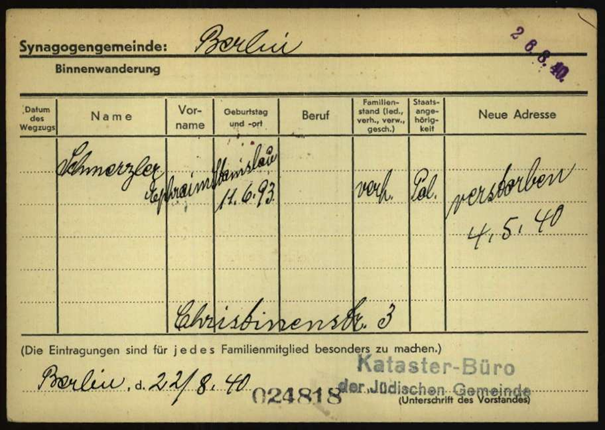 Synagogengemeinde: Berlin
26.8.40.
Binnenwanderung
Datum des Wegzugs
Name
Vor-name
Geburtstag und -ort
Beruf
Familien-stand (led., verh., verw., gesch.)
Staats-ange-hörig-keit
Neue Adresse
Schmerzler
Ephraim
Stanislau
11.6.93
verh.
Pol.
verstorben
4.5.40
Christinenstr. 3
(Die Eintragungen sind für jedes Familienmitglied besonders zu machen.)
Berlin, d. 22/8.40
024818
Kataster-Büro
der Jüdischen Gemeinde
(Unterschrift des Vorstandes)